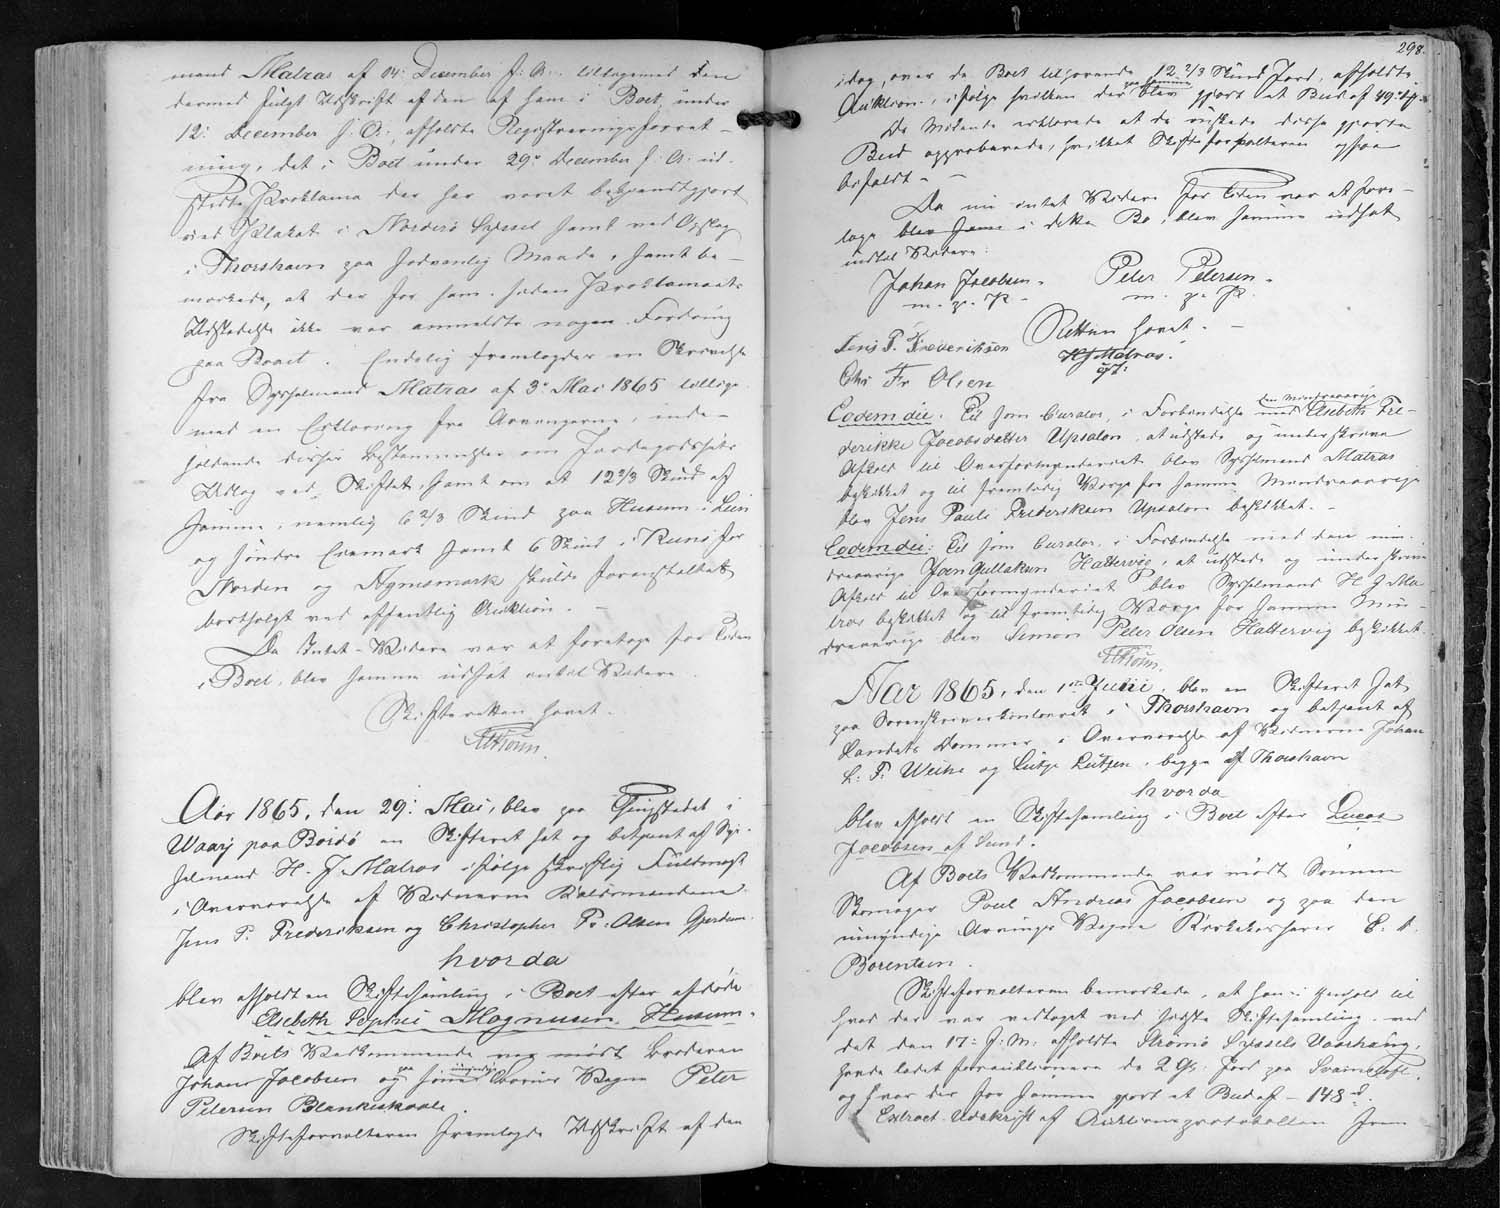 mand Matras af 14: December f: A: tilligemed den
dermed fulgt Udskrift af den af ham i Boet under
12: December f: A: afholdte Registreringsforret-
ning, det i Boet under 29: December f: A: ud-
stedte Proklama der har været bekjendtgjort
ved Plakat i Norderø Syssel samt ved Opslag
i Thorshavn paa sædvanlig Maade, samt be-
mærkede, at der for ham siden Proklamaets
Udstedelse ikke var anmeldte nogen Fordring
paa Boet. Endelig fremlagdes en Skrivelse
fra Sysselmand Matras af 3: Mai 1865 tillige
med en Erklæring fra Arvingerne inde-
holdende disses Bestemmelser om Jordegodsets
Udlæg ved Skiftet, samt om at 12 2/3 Skind af
samme, nemlig 6 2/3 Skind paa Husum i Lun
og søndre Eremark samt 6 Skind i Kunø for
Norden og Agnamark skulde foranstaltet
bortsolgt ved offentlig Auktion. -
Da Intet Videre var at foretage for Tiden
i Boet, blev samme udsat indtil Videre.
Skifteretten hævet.
HTrøun.
Aar 1865, den 29: Mai, blev paa Thingstedet i
Waag paa Bordø en Skifteret sat og betjent af Sys-
selmand H. J. Matras ifølge skriftlig Fuldmagt
i Overværelse af Vidnerne Valdsmændene
Jens P. Frederiksen og Christopher Fr. Olsen Gjerdum
hvorda
blev afholdt en Skiftesamling i Boet efter afdøde
Elsebeth Sophie Magnusen, Husum.
Af Boets Vedkommende var mødt Broderen
Johan Jacobsen og paa sine umyndige Børns Vegne Peter
Petersen Blankeskaale.
Skifteforvalteren fremlagde Udskrift af den
298.
idag over de Boet tilhørende 12 2/3 Skind Jord, afholdte
Auktion, ifølge hvilken der paa samme blev gjort et Bud af 49
De Mødende erklærede at de ønskede disse gjorte
Bud approberede, hvilket Skifteforvalteren ogsaa
bifaldt. -
Da nu intet Videre for Tiden var at fore-
tage blev sam i dette Bo, blev samme udsat
indtil Videre:
Johan Jacobsen. Peter Petersen.
m. p. P. m. p. P.
Retten hævet. -
Jens P. Frederiksen H J Matras.
cst:
Chr Fr Olsen
Eodem die. Til som Curator, i Forbindelse med den mindreaarige Elsebeth Fre-
derikke Jacobsdatter Upsalon, at udstede og underskrive
Afkald til Overformynderiet blev Sysselmand Matras
beskikket og til fremtidig Værge for samme Mindreaarige
blev Jens Pauli Frideriksen Upsalon beskikket. -
Eodem die: Til som Curator, i Forbindelse med den min-
dreaarige Joen Gullaksen Hattervig, at udstede og underskrive
Afkald til Overformynderiet blev Sysselmand H J Ma-
tras beskikket og til fremtidig Værge for samme Min-
dreaarige blev Simon Peter Olsen Hattervig beskikket.
HTrøun.
Aar 1865, den 1ste Juni, blev en Skifteret sat
paa Sorenskriverkontoret i Thorshavn og betjent af
Landets Dommer i Overværelse af Vidnerne Johan
L. F. Weihe og Lütje Lützen, begge af Thorshavn
hvorda
blev afholdt en Skiftesamling i Boet efter Lucas
Jacobsen af Sund.
Af Boets Vedkommende var mødt Sønnen
Skomager Poul Andreas Jacobsen og paa den
umyndige Arvings Vegne Kirkekasserer C. A.
Børentsen.
Skifteforvalteren bemærkede, at han i Henhold til
hvad der var vedtaget ved sidste Skiftesamling, ved
det den 17: f: M: afholdte Strømø Syssels Vaarthing,
havde ladet foranktionere de 2 G. Jord paa Svaines
og hvor der for samme gjort et Bud af - 148 d.
Extract Udskrift af Auktionsprotokollen frem